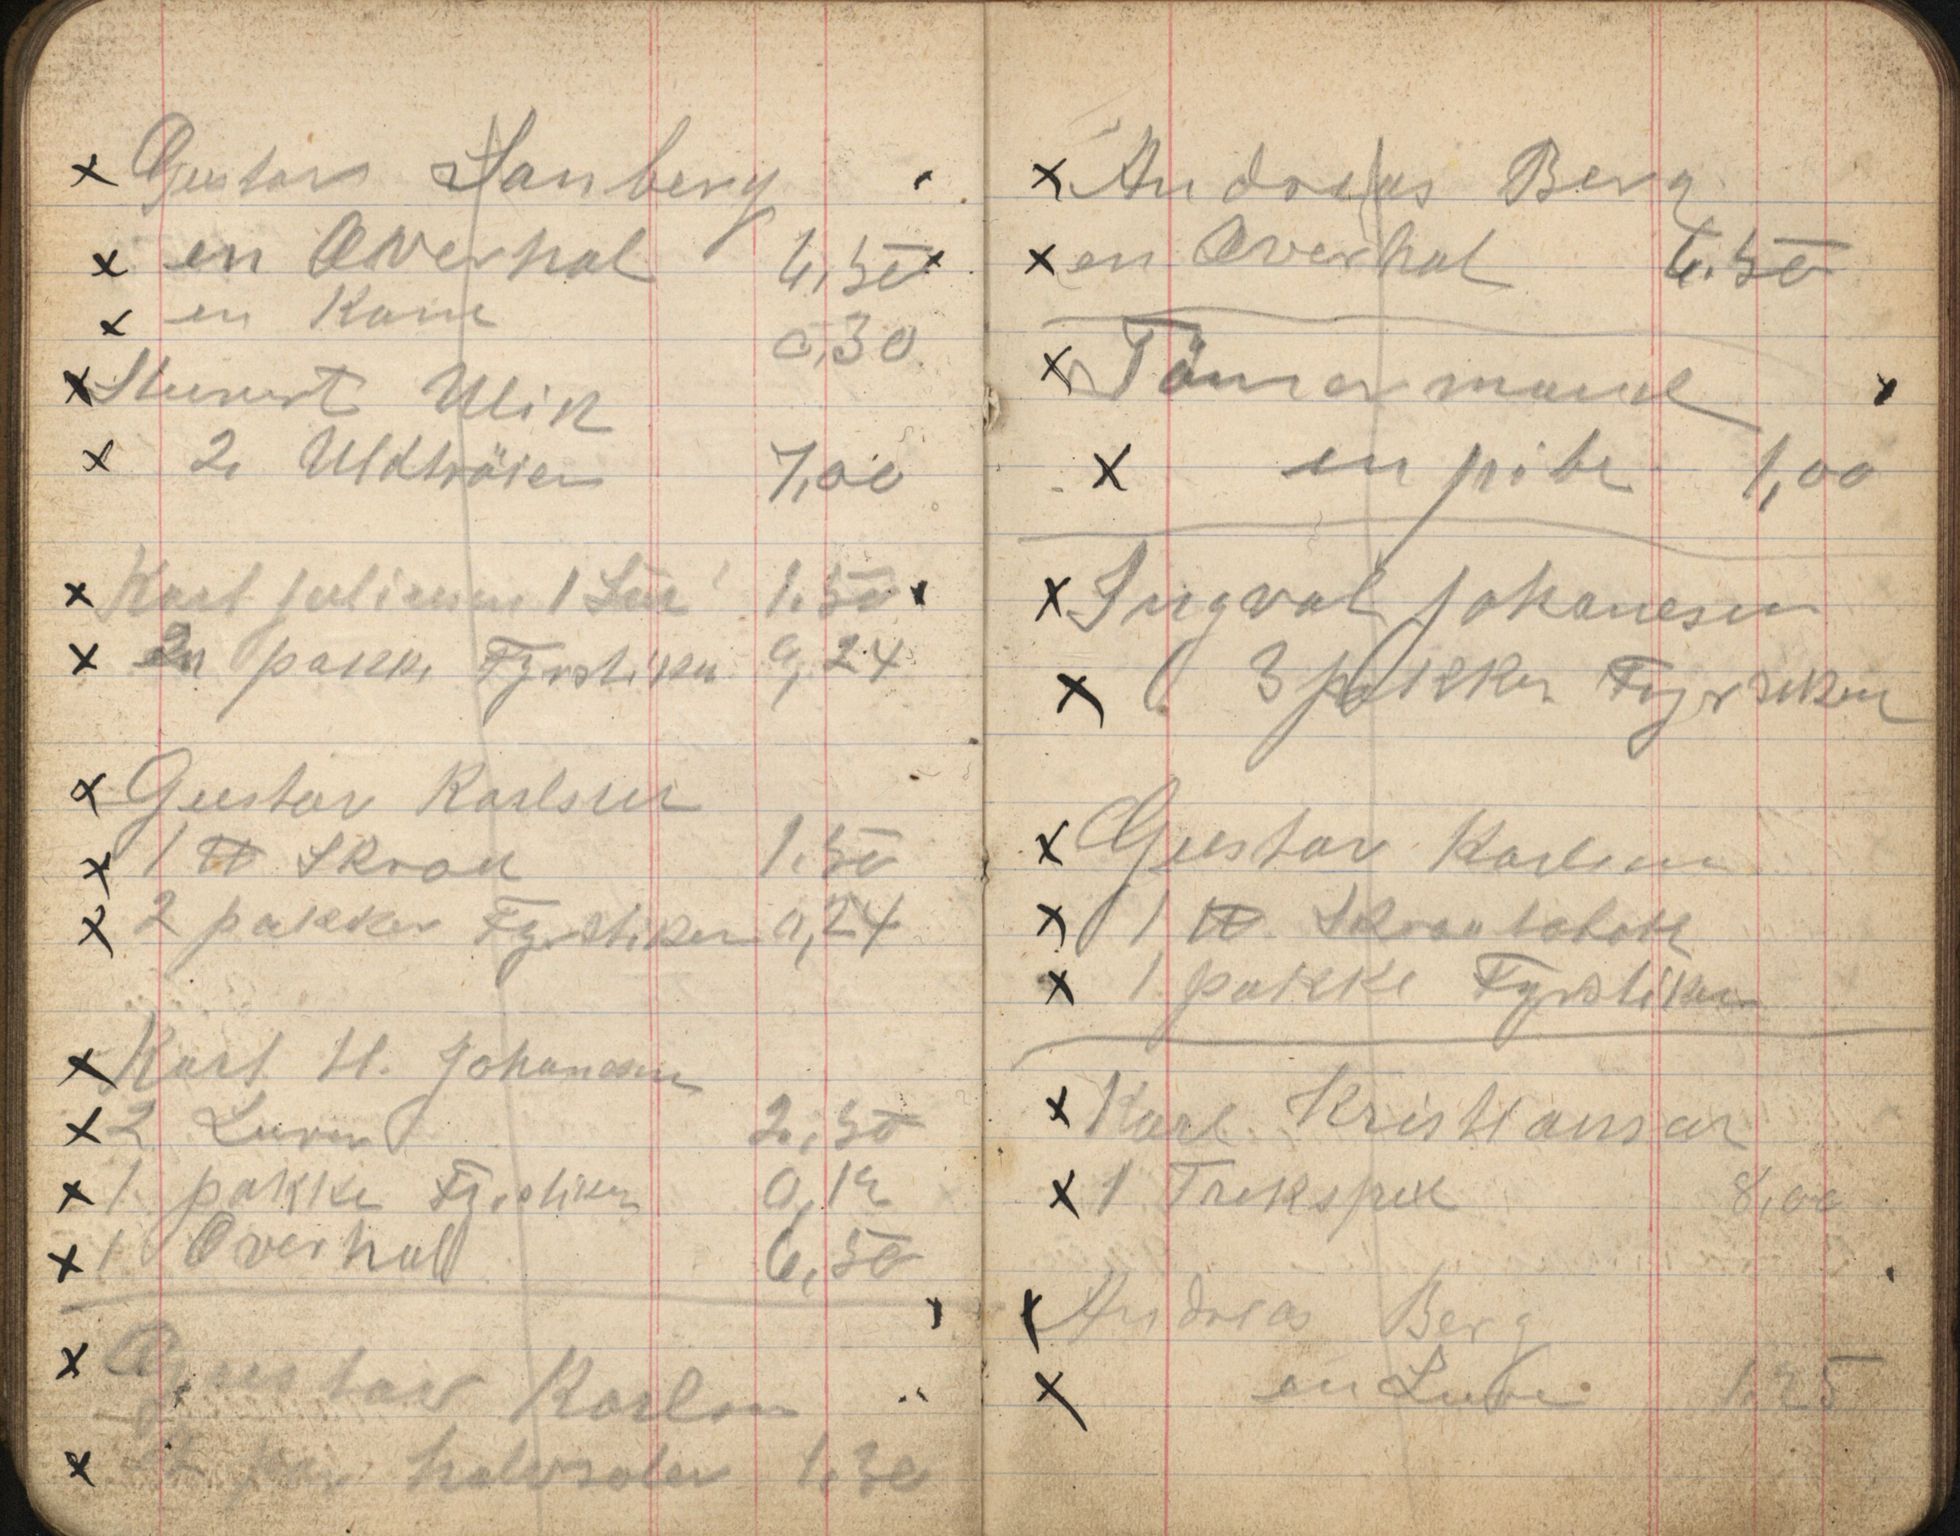 x Gustav Sanberg
x en Overhal 6,50 x
x en Kam 0,30
x Stuvert Ulik
x 2 Uldtröier 7,00
x Karl Juliusen 1 1,50 x
x En pakke Fyrstiker 0,24
x Gustav Karlsen
x 1 ℔ Skraa 1,50
x 2 pakker Fyrstiker 0,24
x Karl H. Johansen
x 2 Luver 2,50
x 1 pakke Fyrstiker 0,12
x 1 Overhal 6,50
x Gustav Karlsen
x Et par halvsoler 1,30
x Andreas Berg
x en Overhal 6,50
x Tömermand
x en pibe 1,00
x Ingval Johanesen
x 3 pakker Fyrstiken
x Gustav Karlsen
x 1 ℔ Skraatobak
x 1 pakke Fyrstiker
x Karl Kristiansen
x 1 Trekspel 8,00
x Andreas Berg
x en Luve 1,25